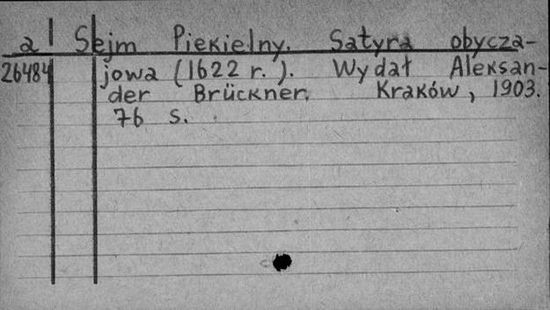 a Sejm Piekielny. Satyra obycza-
26484 jowa (1622 r.). Wydał Aleksan-
der Brückner. Kraków, 1903.
76 s.